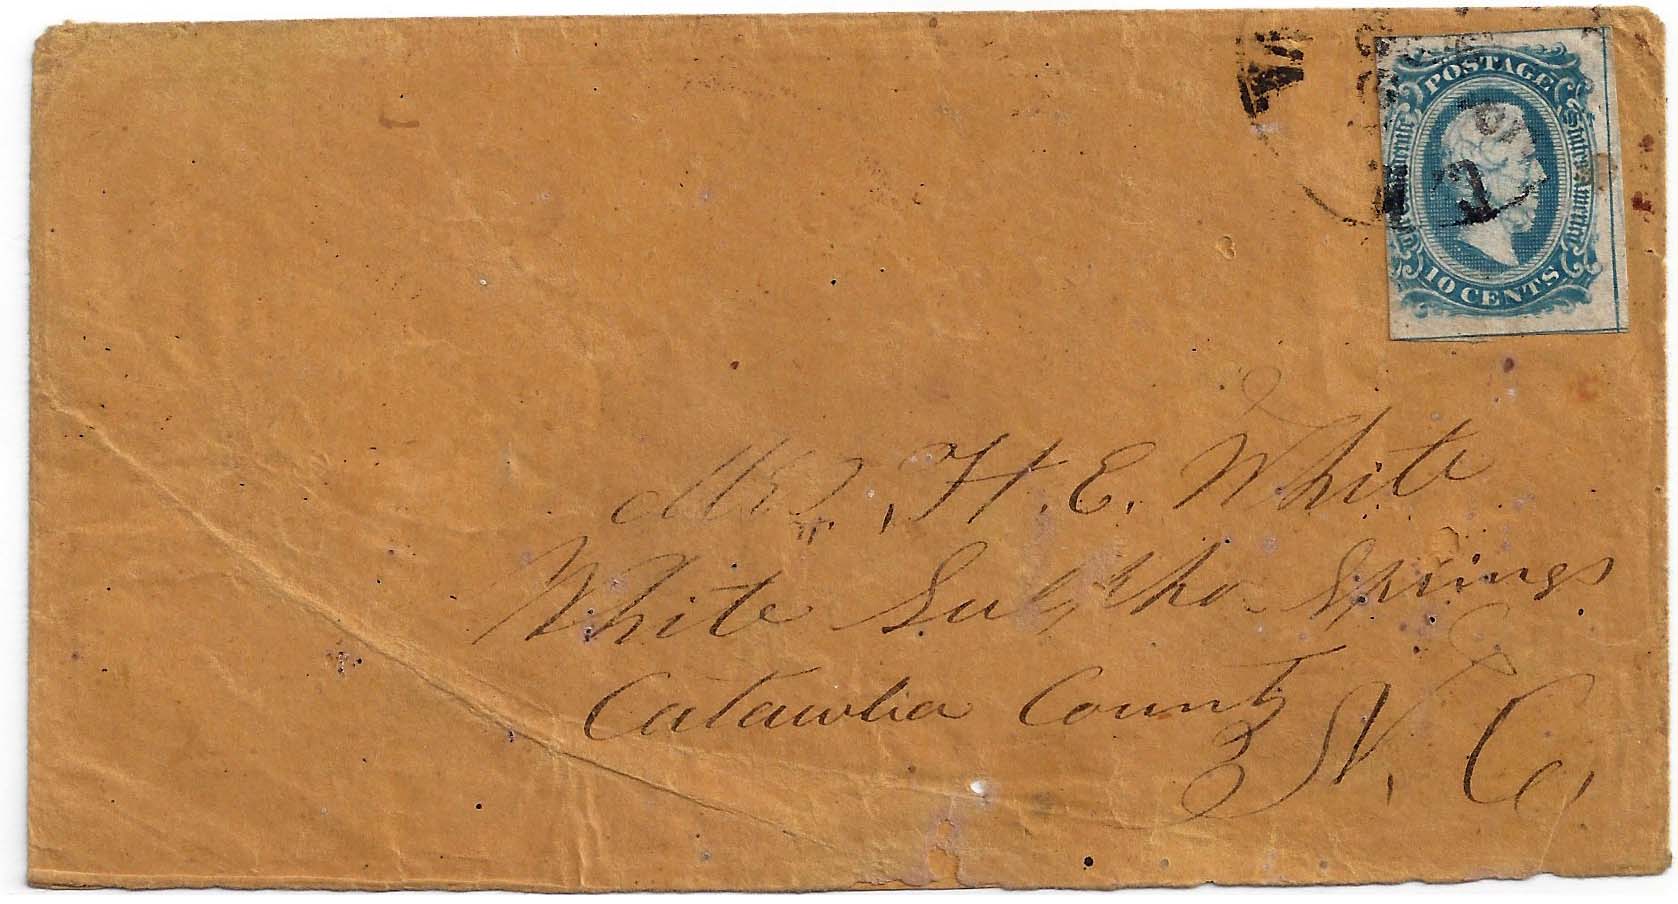 POSTAGE
The Confederate States of America
10 CENTS
Mrs. H. E. White
White Sulpho. Springs
Catawba County
N. C.